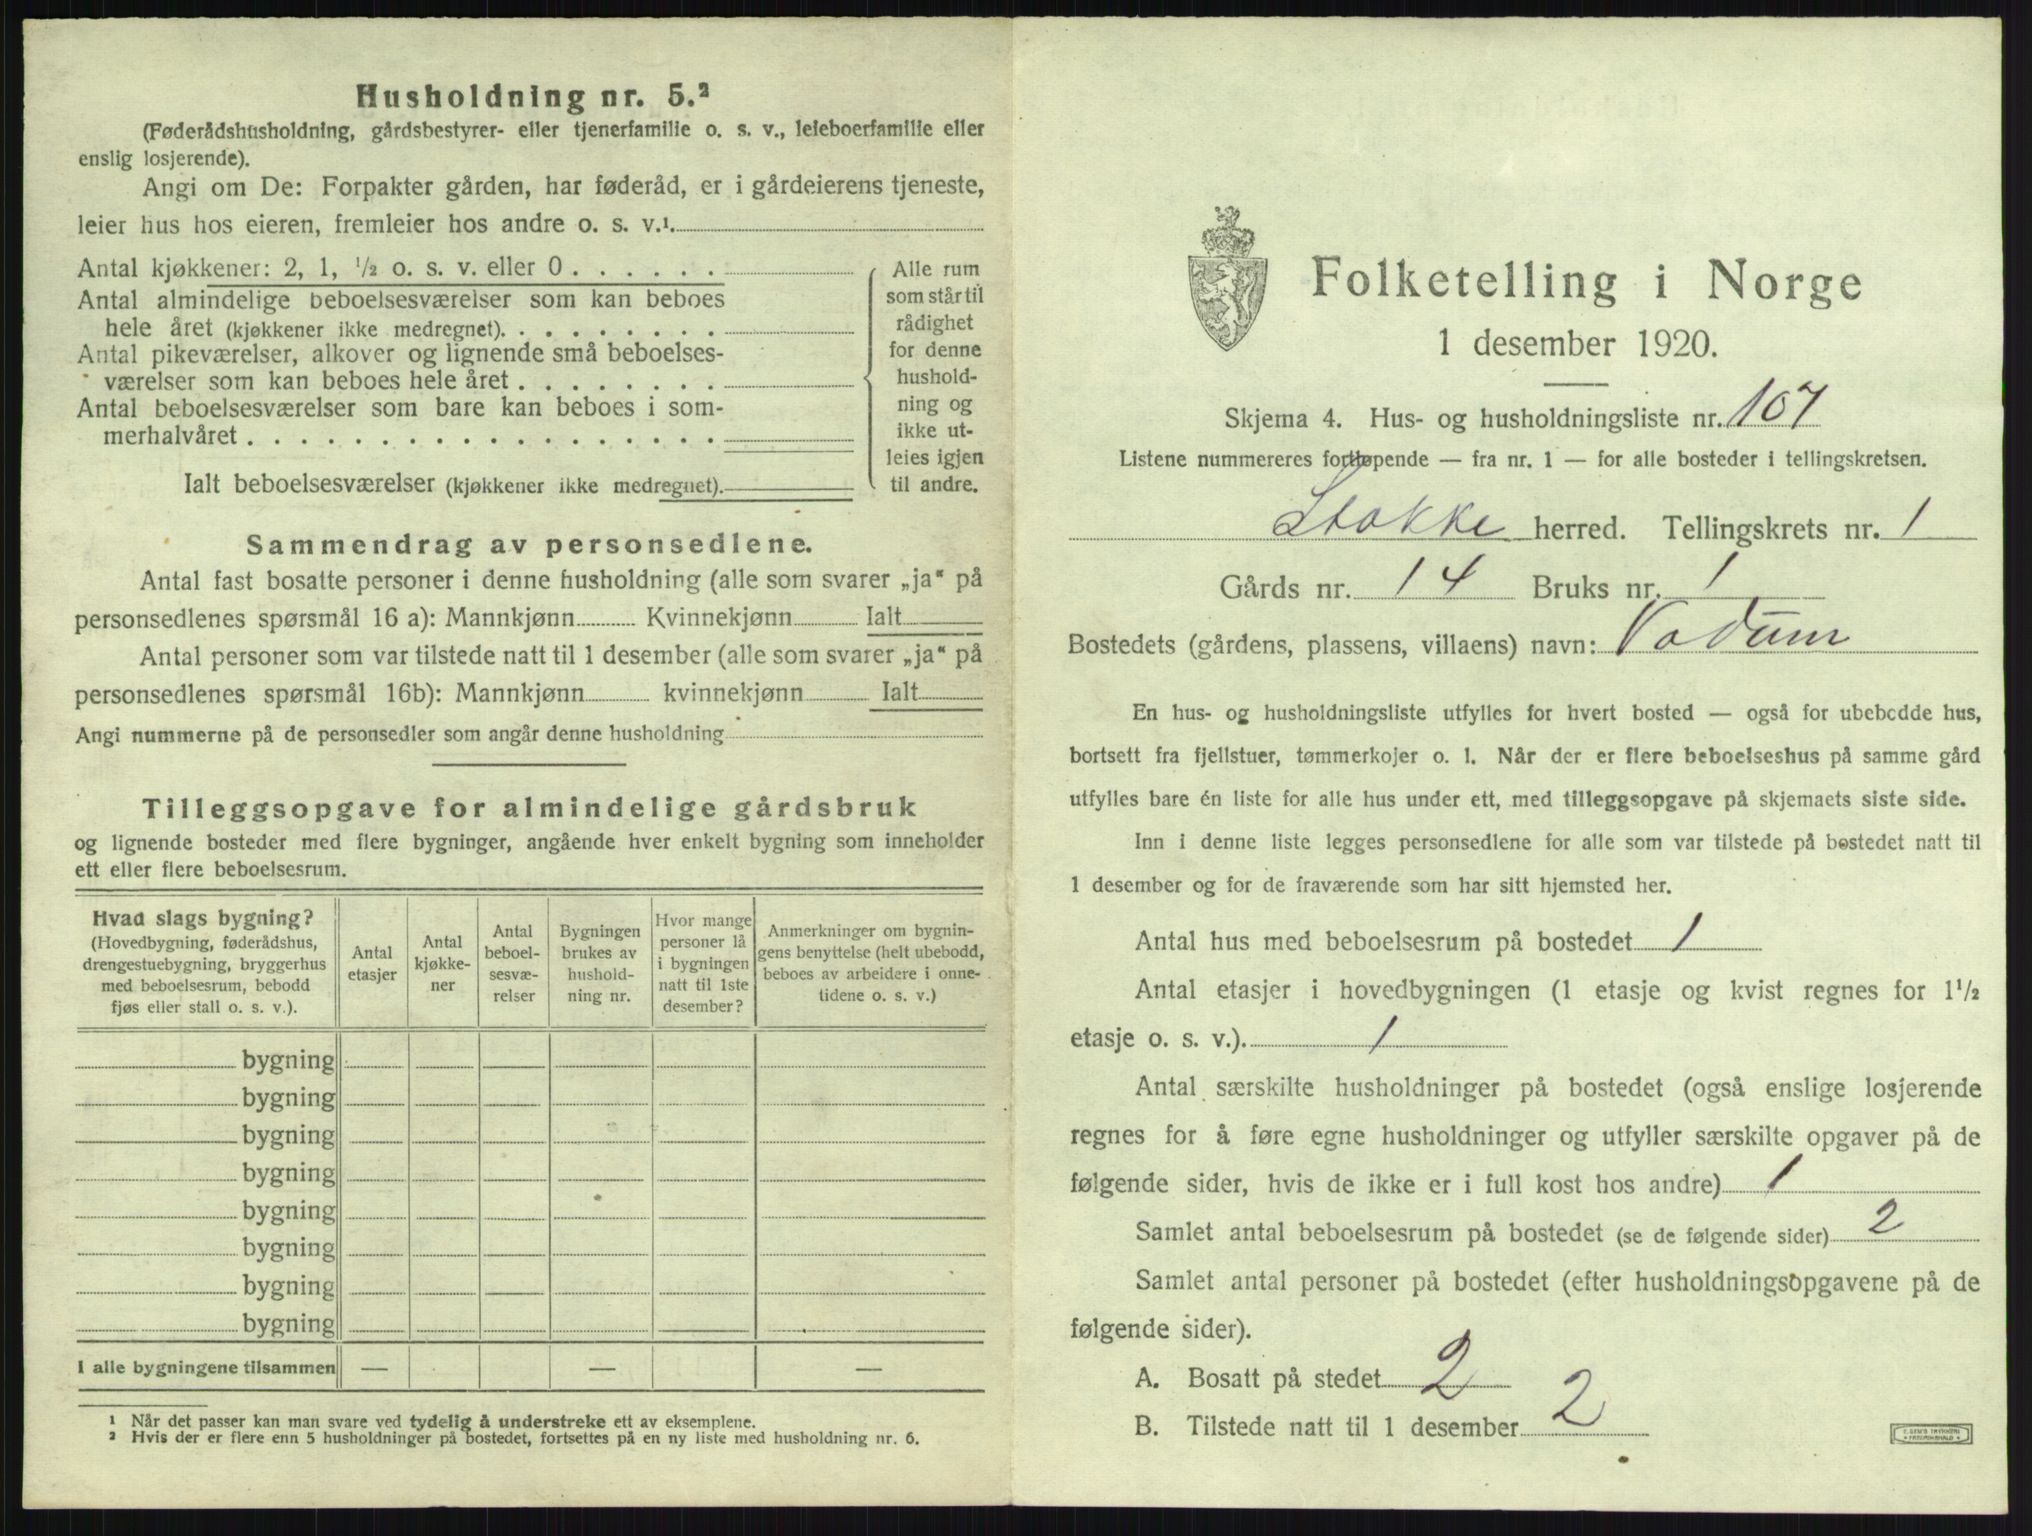 Husholdning nr. 5.²
(Føderådshusholdning, gårdsbestyrer- eller tjenerfamilie o. s. v., leieboerfamilie eller
enslig losjerende).
Angi om De: Forpakter gården, har føderåd, er i gårdeierens tjeneste,
leier hus hos eieren, fremleier hos andre o. s. v.¹
Antal kjøkkener: 2, 1, ½ o. s. v. eller 0 . . . . . .
Antal almindelige beboelsesværelser som kan beboes
hele året (kjøkkener ikke medregnet). . . . . . . . .
Antal pikeværelser, alkover og lignende små beboelses-
værelser som kan beboes hele året . . . . . . . .
Antal beboelsesværelser som bare kan beboes i som-
merhalvåret . . . . . . . . . . . . . . . . . .
Ialt beboelsesværelser (kjøkkener ikke medregnet).
Alle rum
som står til
rådighet
for denne
hushold-
ning og
ikke ut-
leies igjen
til andre.
Sammendrag av personsedlene.
Antal fast bosatte personer i denne husholdning (alle som svarer „ja“ på
personsedlenes spørsmål 16 a): Mannkjønn Kvinnekjønn Ialt
Antal personer som var tilstede natt til 1 desember (alle som svarer „ja“ på
personsedlenes spørsmål 16b): Mannkjønn kvinnekjønn Ialt
Angi nummerne på de personsedler som angår denne husholdning
Tilleggsopgave for almindelige gårdsbruk
og lignende bosteder med flere bygninger, angående hver enkelt bygning som inneholder
ett eller flere beboelsesrum.
Hvad slags bygning?
(Hovedbygning, føderådshus,
drengestuebygning, bryggerhus
med beboelsesrum, bebodd
fjøs eller stall o. s. v.).
Antal
etasjer
Antal
kjøkke-
ner
Antal
beboel-
sesvæ-
relser
Bygningen
brukes av
hushold-
ning nr.
Hvor mange
personer lå
i bygningen
natt til 1ste
desember?
Anmerkninger om bygnin-
gens benyttelse (helt ubebodd,
beboes av arbeidere i onne-
tidene o. s. v.)
bygning
bygning
bygning
bygning
bygning
bygning
bygning
bygning
I alle bygningene tilsammen — — —
¹ Når det passer kan man svare ved tydelig å understreke ett av eksemplene.
² Hvis der er flere enn 5 husholdninger på bostedet, fortsettes på en ny liste med husholdning nr. 6.
Folketelling i Norge
1 desember 1920.
Skjema 4. Hus- og husholdningsliste nr. 107
Listene nummereres fortløpende — fra nr. 1 — for alle bosteder i tellingskretsen.
Stokke herred. Tellingskrets nr. 1
Gårds nr. 14 Bruks nr. 1
Bostedets (gårdens, plassens, villaens) navn: Vadum
En hus- og husholdningsliste utfylles for hvert bosted — også for ubebodde hus,
bortsett fra fjellstuer, tømmerkojer o. l. Når der er flere beboelseshus på samme gård
utfylles bare én liste for alle hus under ett, med tilleggsopgave på skjemaets siste side.
Inn i denne liste legges personsedlene for alle som var tilstede på bostedet natt til
1 desember og for de fraværende som har sitt hjemsted her.
Antal hus med beboelsesrum på bostedet 1
Antal etasjer i hovedbygningen (1 etasje og kvist regnes for 1½
etasje o. s. v.). 1
Antal særskilte husholdninger på bostedet (også enslige losjerende
regnes for å føre egne husholdninger og utfyller særskilte opgaver på de
følgende sider, hvis de ikke er i full kost hos andre) 1
Samlet antal beboelsesrum på bostedet (se de følgende sider) 2
Samlet antal personer på bostedet (efter husholdningsopgavene på de
følgende sider).
A. Bosatt på stedet 2
B. Tilstede natt til 1 desember 2